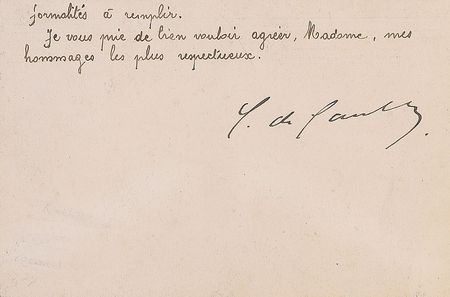 formalités à remplir.
Je vous prie de bien vouloir agréer, Madame, mes
hommages les plus respectueux.
C. de Gaulle.